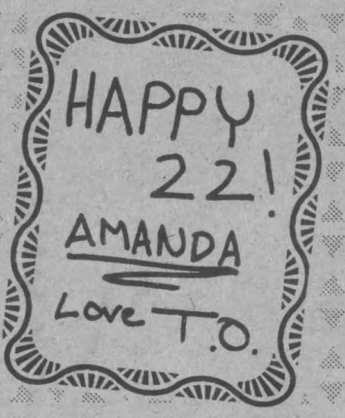 HAPPY
22!
AMANDA
Love T.O.